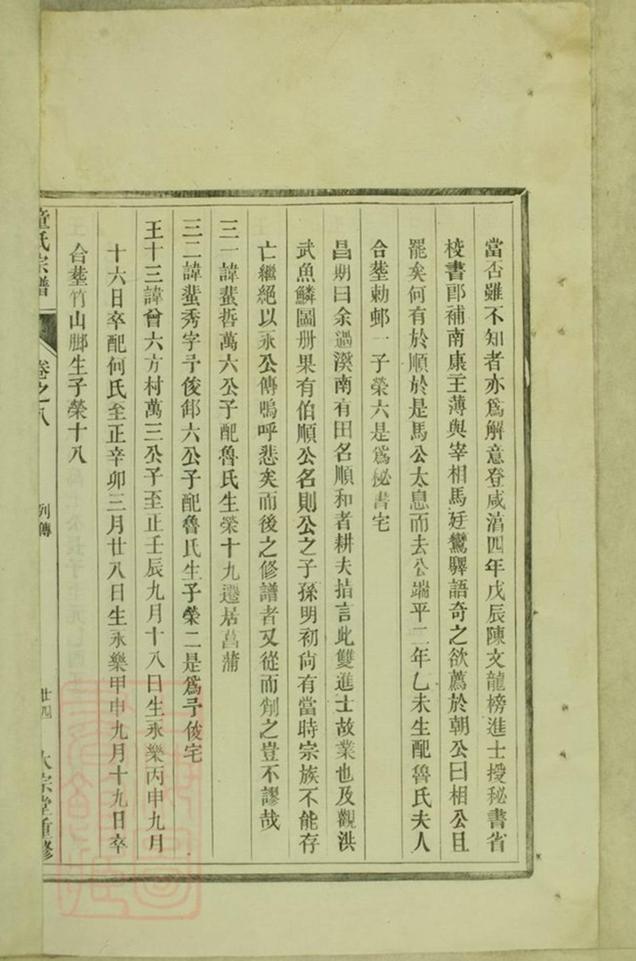 當否雖不知者亦爲解意登咸淳四年戊辰陳文龍榜進士授秘書省
校書郎補南康王薄與宰相馬廷鸞驛語奇之欲薦於朝公曰相公且
罷矣何有於順於是馬公太息而去公端平二年乙未生配魯氏夫人
合塟勅邨一子榮六是爲秘書宅
昌朔曰余過溪南有田名順和者耕夫指言此雙進士故業也及觀洪
武魚鱗圖册果有伯順公名則公之子孫明初尙有當時宗族不能存
亡繼絕以永公傳嗚呼悲矣而後之修譜者又從而劊之豈不謬哉
三一諱蜚哲萬六公子配魯氏生榮十九遷居菖蒲
三二諱蜚秀字予俊邮六公子配魯氏生子榮二是爲予俊宅
王十三諱曾六方村萬三公子至正壬辰九月十八日生永樂丙申九月
十六日卒配何氏至正辛卯三月廿八日生永樂甲申九月十九日卒
合塟竹山脚生子榮十八
童氏宗譜 卷之八 列傳 廿四 大宗堂重修